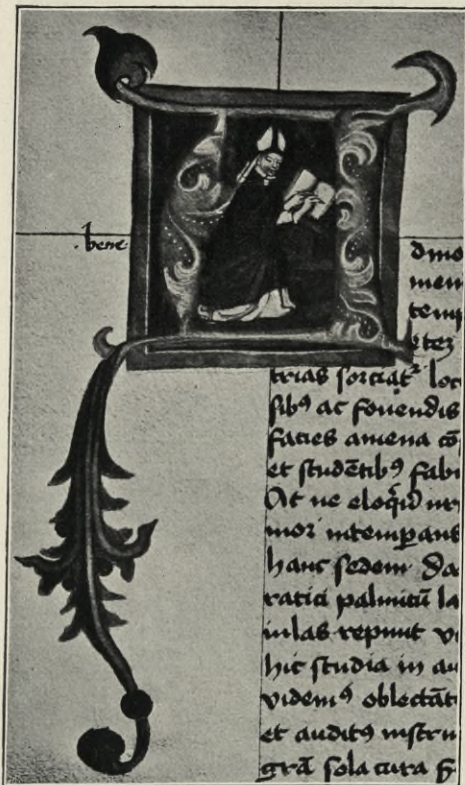 .bene
dmo
men
temp
trias sorciat᷑ loc
sibꝰ ac fouendis
facies amena cō
et studētibꝰ fabu
At ne eloqͥū
mor intemꝑans
hanc sedem Da
ratici palmitū la
iulas repunt vi
hic studia in au
videmꝰ oblectāt
et auditꝰ instru
grā sola cura